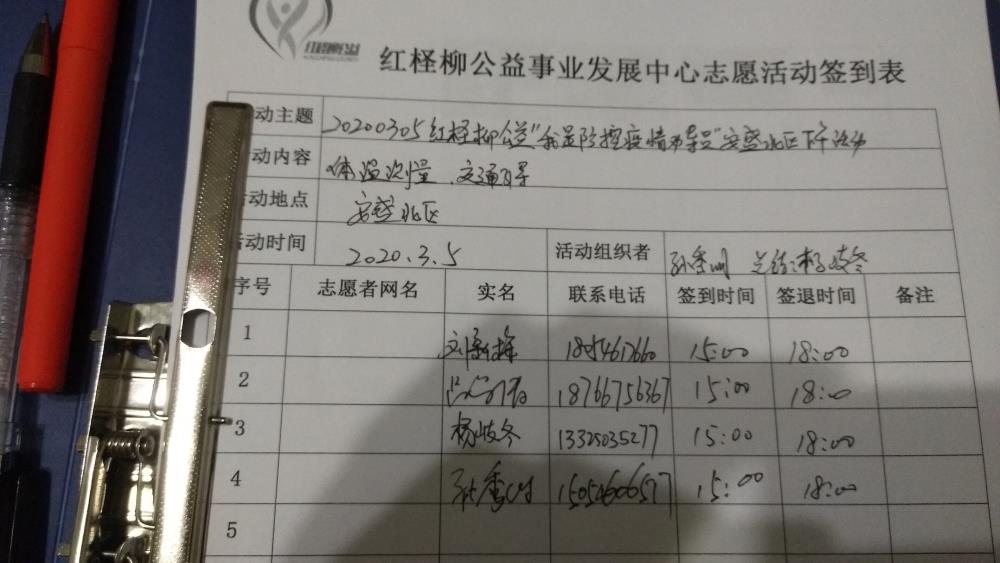 红柽柳公益事业发展中心志愿活动签到表
动主题 20200305红柽柳公益"我是防控疫情 导员"安盛北区下午活动
动内容 体温测量、交通引导
活动地点 安盛北区
活动时间 2020.3.5 活动组织者 孙秀 总结:杨岐冬
序号 志愿者网名 实名 联系电话 签到时间 签退时间 备注
1 刘 15:00 18:00
2 18766756367 15:00 18:00
3 杨岐冬 13325035277 15:00 18:00
4 孙秀 15:00 18:00
5